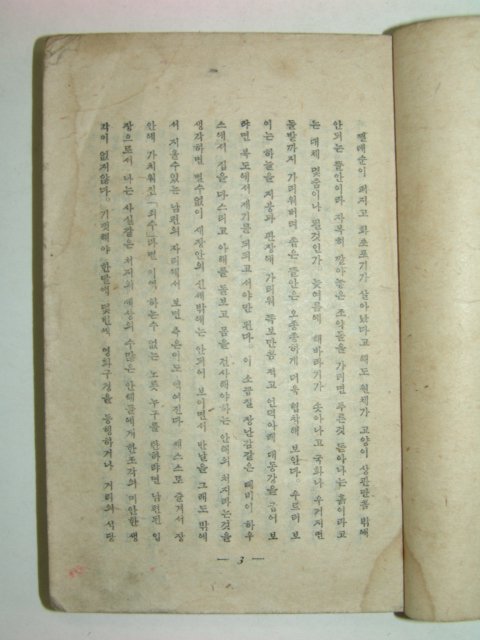 찔레순이 퍼지고 화초포기가 살아났다고 해도 원체가 고양이 상판만큼 밖에
안되는 뜰안이라 자복히 깔아놓은 조약돌을 가리면 푸른것 돋아나는 흙이라고
는 대체 몇줌이나 될것인가 늦여름에 해바라기가 솟아나고 국화나 우거지면
돌밭까지 가리워버려 좁은 뜰안은 오종종하게 더욱 협착해 보인다 우르러 보
이는 하늘을 지붕과 판장에 가리워 쪽보만큼 적고 언덕아래 대동강을 굽어 보
라면 복도에서 제기를 디디고 서야만 된다. 이 소꿉질 장난감같은 데베이 하우
스에서 집을 다스리고 아해를 돌보고 몸을 건사해야하는 안해의 처지라는것을
생각하면 별수없이 새장안의 신세밖에는 안되어 보이면서 반날을 그래도 밖에
서 지울수있는 남편의 자리에서 보면 측은히도 여겨진다 제스스로 즐겨서 장
안에 가치워진 「죄수」라면 이여 하는수 없는 노릇 누구를 한하랴면 남편된 입
장으로서 나는 사실같은 처지의 세상의 수많은 안해들에게한조각의 미안한 생
각이 없지않다. 기껏해야 한달에 몇번씩 영화구경을 동행하거나 거리의 식당
— 3 —